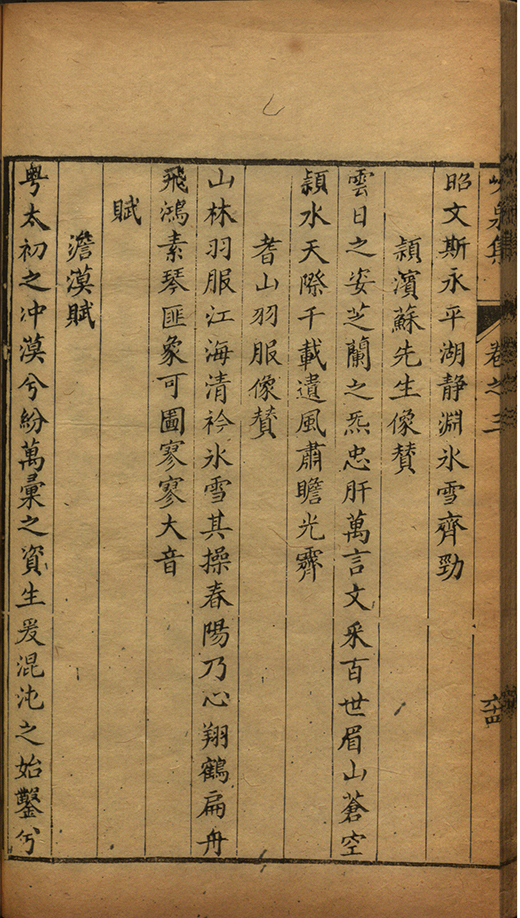 峴泉集 卷之三 六十四
昭文斯永平湖静淵氷雪齊勁
頴濱蘇先生像賛
雲日之姿芝蘭之炁忠肝萬言文采百世眉山蒼空
頴水天際千載遺風肅瞻光霽
耆山羽服像賛
山林羽服江海清衿氷雪其操春陽乃心翔鶴扁舟
飛鴻素琴匪象可圖寥寥大音
賦
澹漠賦
粤太初之冲漠兮紛萬彙之資生爰混沌之始鑿兮